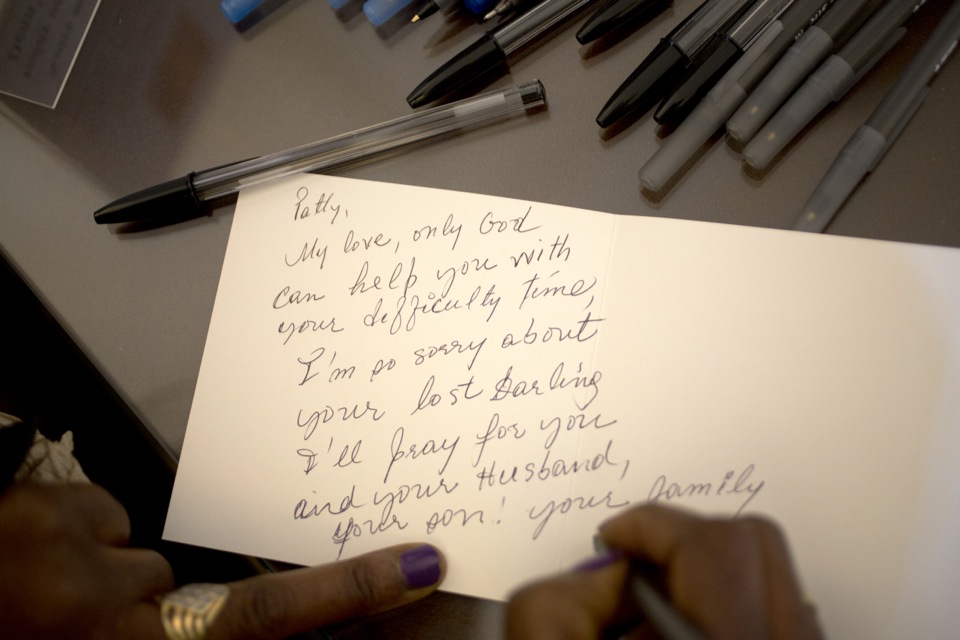 Patty,
My love, only God
can help you with
your difficulty time,
I'm so sorry about
your lost Darling
I'll pray for you
and your Husband,
your son! your family